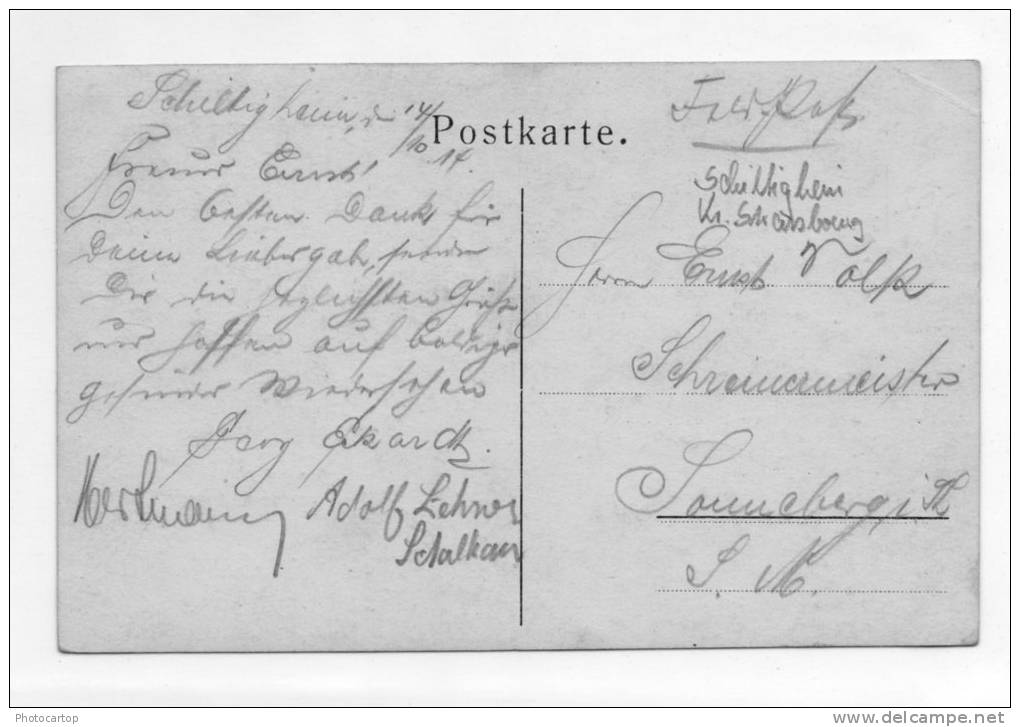 Schiltigheim, d. 14/10.17.
Postkarte.
Freund Ernst!
Den besten Dank für
deine Liebesgabe, sende
Dir die herzlichsten Grüße
und hoffen auf baldiges
gesundes Wiedersehen
Georg Ekardt.
Hartmann
Adolf Lehner
Schalkau
Feldpost.
Schiltigheim
Kr. Strasbourg
Herrn Ernst Volk
Schreinermeister
Sonneberg i. Th
S. M.
Photocartop
delcampe.net